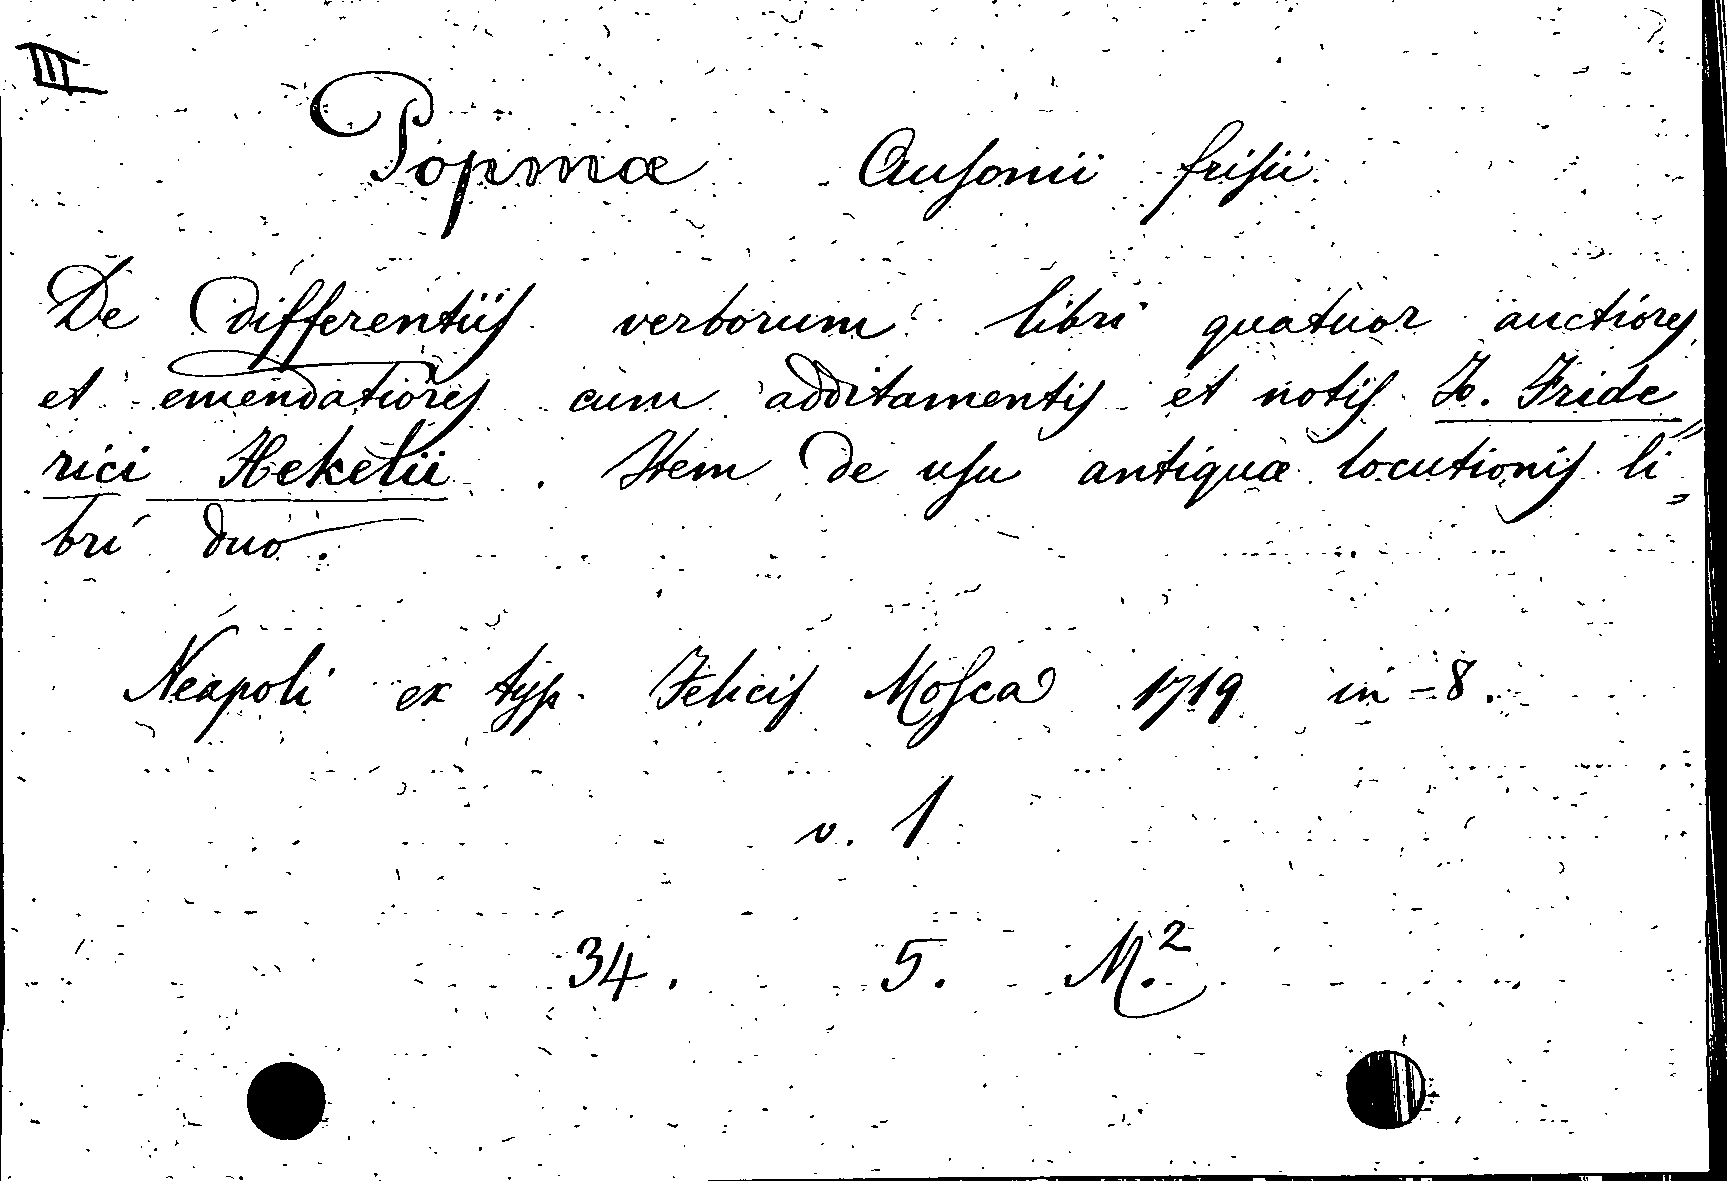 III
Popmæ Ausonii frisii
De differentiis verborum libri quatuor auctiores
et emendatiores cum additamentis et notis Jo. Fride
rici Hekelii. Item de usu antiquæ locutionis li„
bri duo.
Neapoli ex typ. Felicis Mosca 1719 in-8.
v. 1
34. 5. M.²